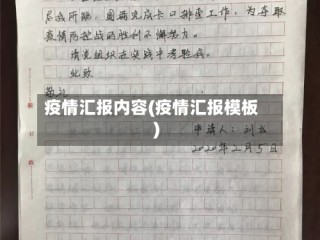 尽我所能，圆满完成卡口排查工作，为夺取
疫情防控战的胜利不懈努力。
请党组织在实战中考验我。
此致
敬礼
疫情汇报内容(疫情汇报模板
)
申请人：刘
2020年2月5日